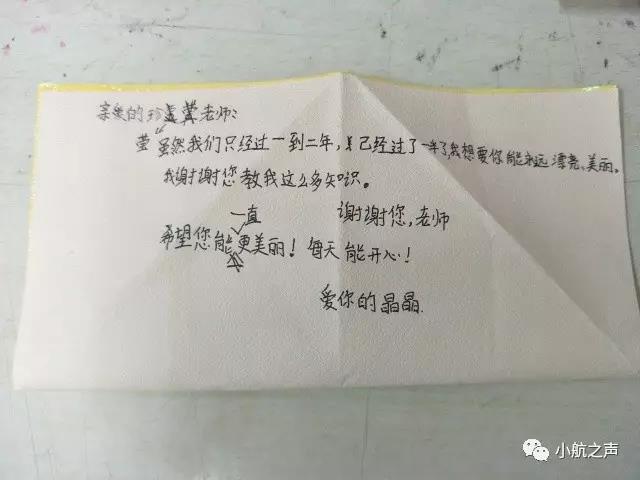 亲爱的珍老师:
莹虽然我们只经过一到二年,已经过了一半了,我想要你能永远漂亮、美丽。
我谢谢您教我这么多知识。
谢谢您,老师
一直
希望您能更美丽!每天能开心!
爱你的晶晶.
小航之声